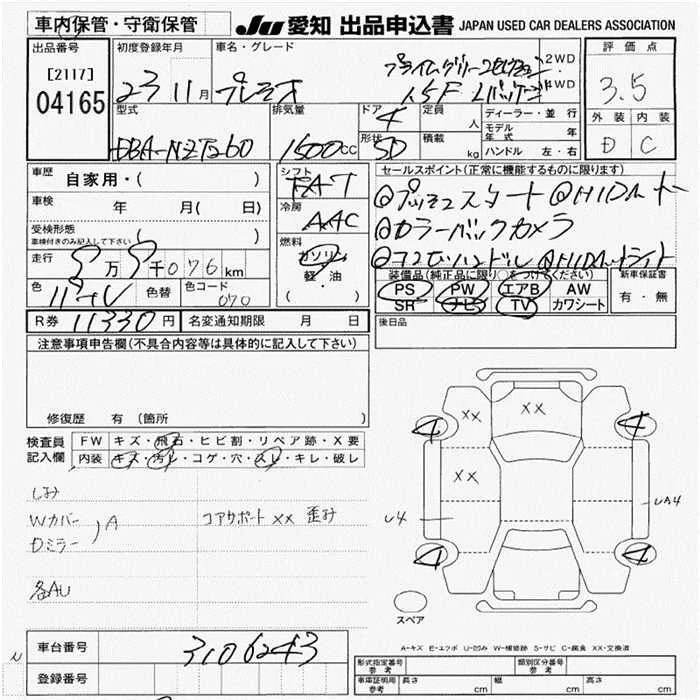 車内保管・守衛保管
JU 愛知 出品申込書 JAPAN USED CAR DEALERS ASSOCIATION
出品番号 初度登録年月 車名・グレード 評価点
[2117]
04165
23 11月 プレミオ プライムグリーンセレクション
1.5F Lパッケージ
2WD
4WD
3.5
型式 排気量 ドア 定員 人 ディーラー・並行 外装 内装
4
モデル年式 年
DBA-NZT260 1500cc 形状 SD 積載 kg ハンドル 左・右 D C
車歴 自家用・( )
シフト FAT
セールスポイント(正常に機能するものに限ります)
◎プッシュスタート ◎HIDオート
車検 年 月( 日)
冷房 AAC
◎カラーバックカメラ
受検形態
車検付きのみ記入して下さい ( )
走行 5万5千076km
燃料 ガソリン
軽・油
( )
◎コンビハンドル ◎HIDオートライト
装備品(純正品に限り○をつけてください) 新車保証書
色 パール 色替 色コード 070
PS PW エアB AW 有・無
SR ナビ TV カワシート
R券 11330円 名変通知期限 月 日
後日品
注意事項申告欄(不具合内容等は具体的に記入して下さい)
修復歴 有 (箇所 )
検査員記入欄 FW キズ・飛石・ヒビ割・リペア跡・X要
内装 キズ・汚レ・コゲ・穴・スレ・キレ・破レ
しみ
Wカバー
Dミラー
)A
コアサポート XX 歪み
各AU
XX XX
4 4
XX
U4 UA4
4 4
スペア
A-キズ E-エクボ U-凹み W-補修跡 S-サビ C-腐食 XX-交換済
車台番号 3106243
N
登録番号
形式指定番号 参考 類別区分番号 参考
車庫証明用 参考 長さ cm 幅 cm 高さ cm